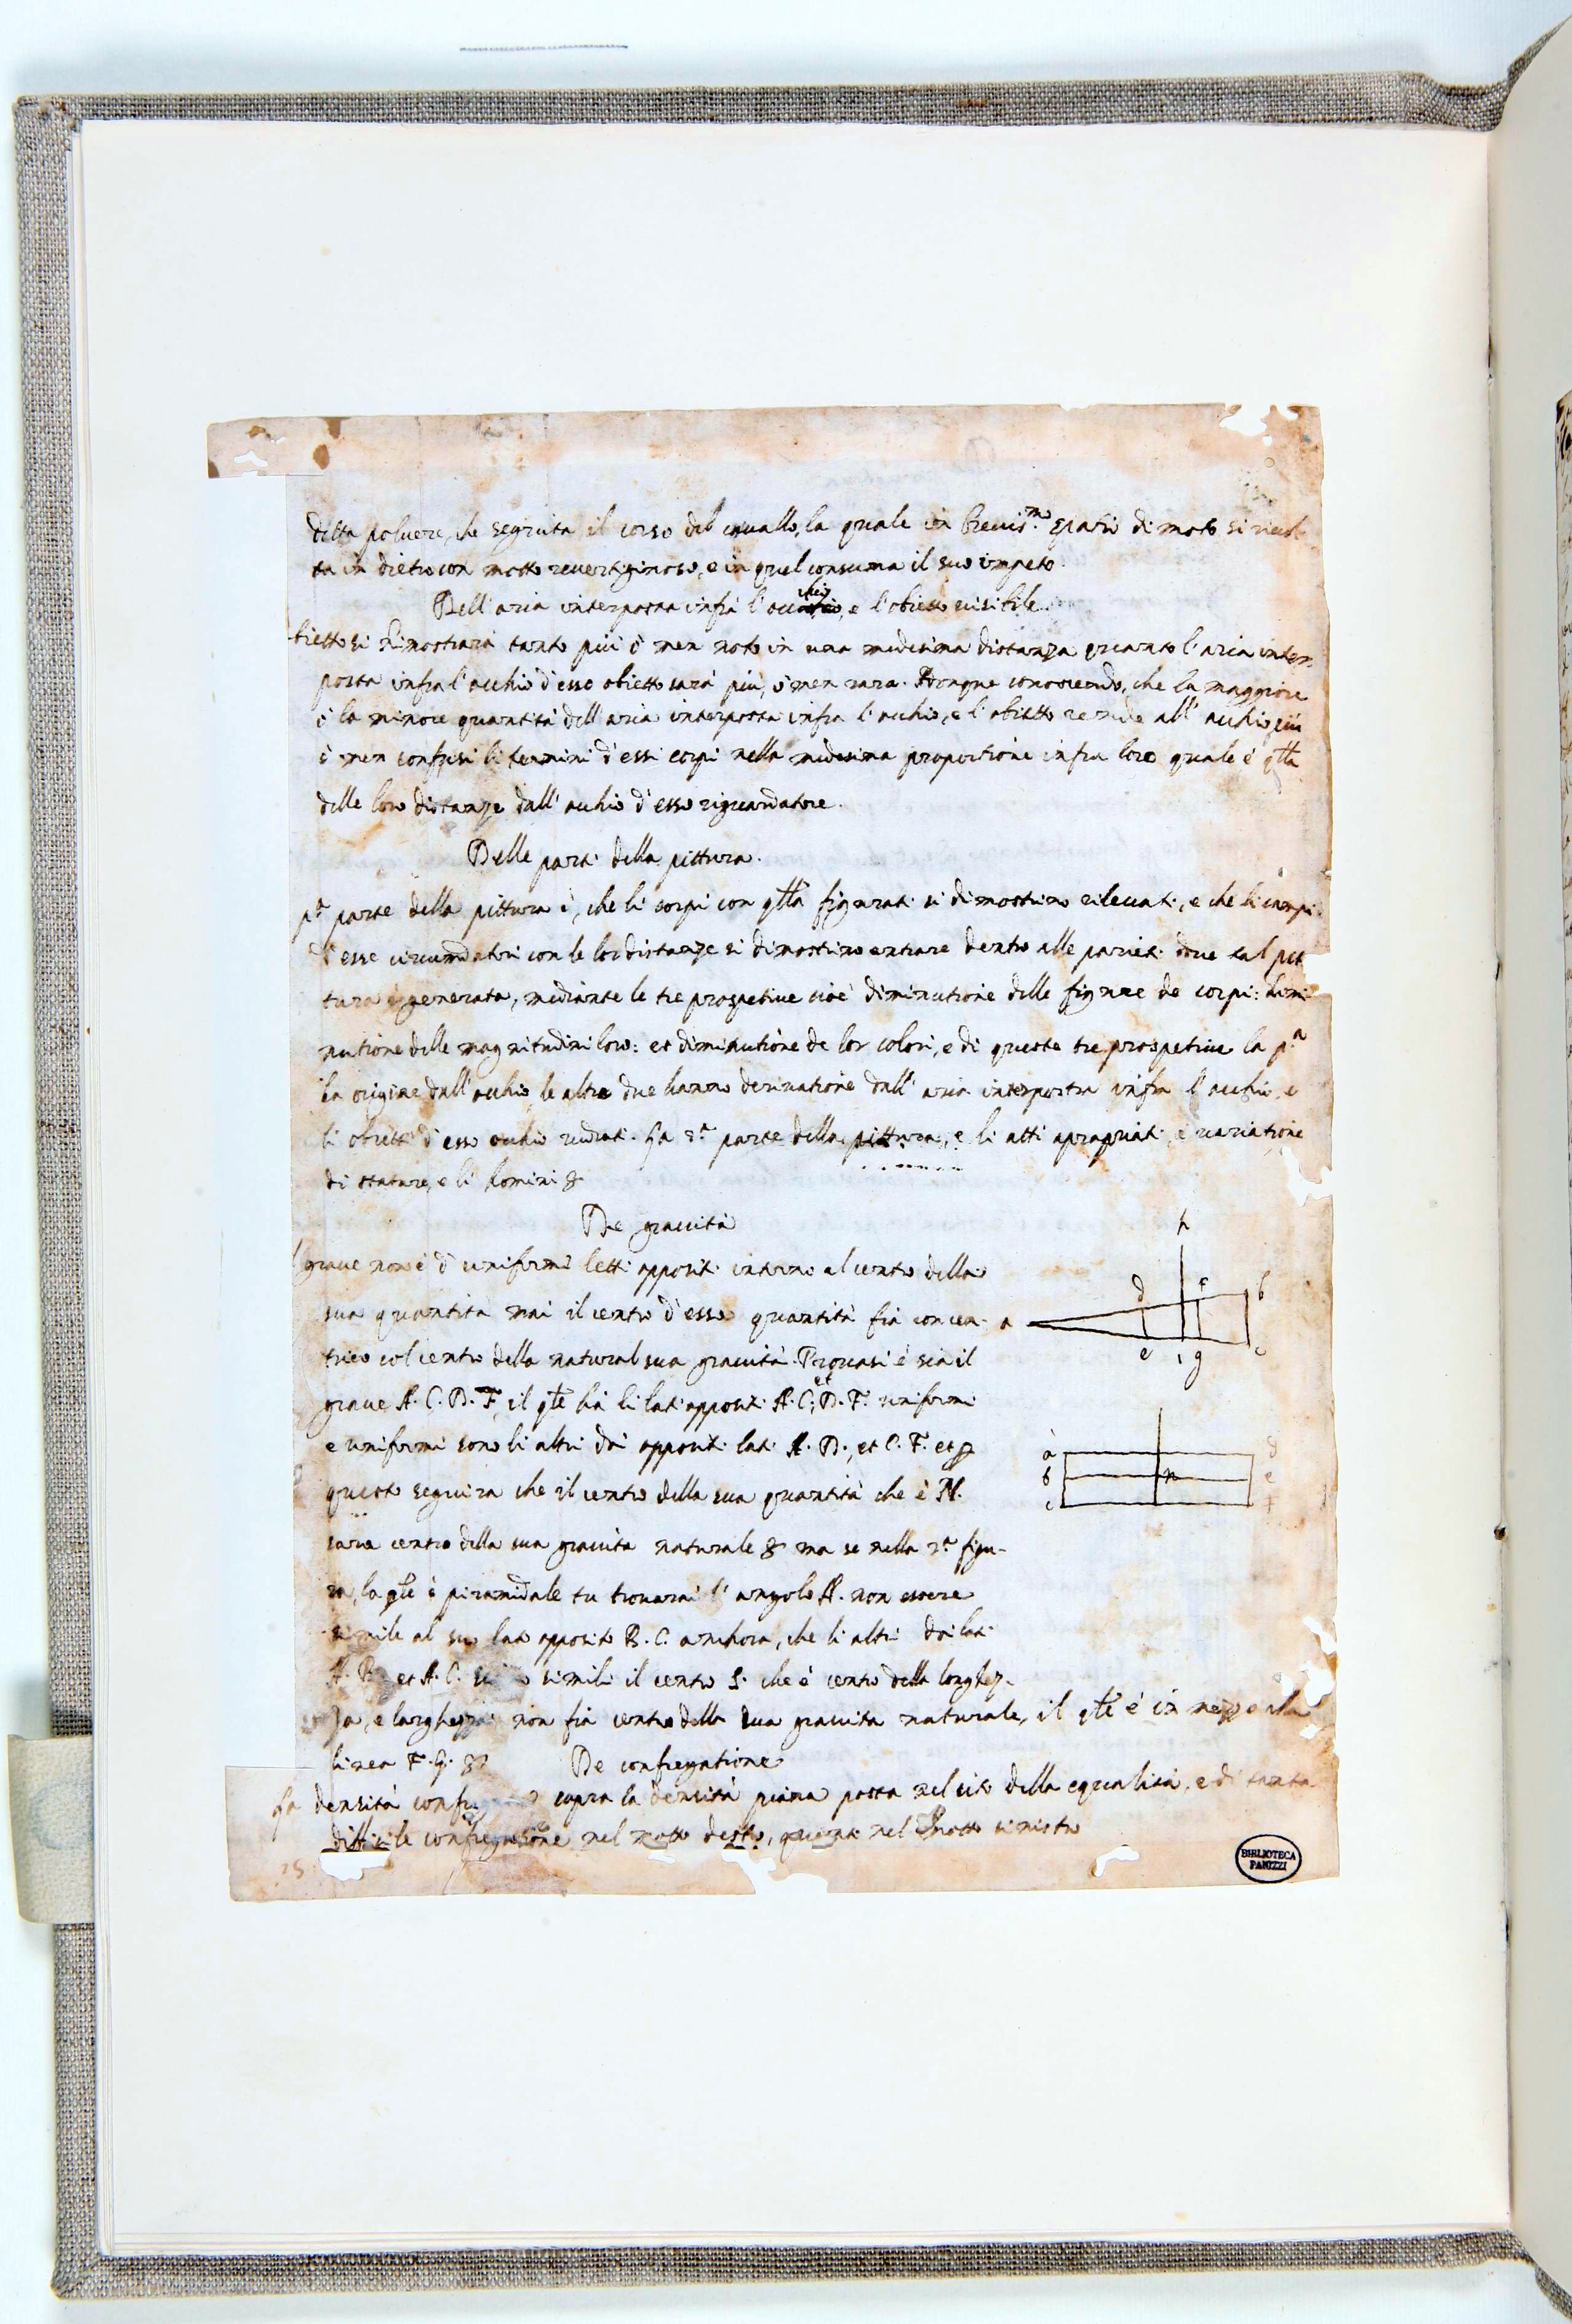 detta poluere, che seguita il corso del cavallo, la quale in breuis.mo spatio di moto si riuol-
ta in dietro con motto reuertiginoso, e in quel consuma il suo impeto
Dell' aria interposta infrà l' occhio, e l' obietto uisibile.
bietto si dimostrarà tanto più ò men noto in una medesima distanza quanto l' aria inter-
posta infra l' occhio d' esso obietto sarà più, ò men rara. Donque conoscendo, che la maggiore
ò la minore quantità dell' aria interposta infra l' occhio, e l' obietto rende all' occhio più
ò men confusi li termini d' essi corpi nella medesima proportione infra loro quale è qlla
delle loro distanze dall' occhio d' esso riguardatore.
Delle parti della pittura.
pa parte della pittura è, che li corpi con qlla figurati si dimostrino rileuati, e che li campi
d' esse circumdatori con le lor distanze si dimostrino entrare dentro alle parieti doue tal pit
tura è generata, mediante le tre prospetiue cioè diminutione delle figure de corpi: dimi
nutione delle magnitudini loro: et diminutione de lor colori, e di queste tre prospetiue la p.a
ha origine dall' occhio, le altre due hanno deriuatione dall' aria interposta infra l' occhio, e
li obietti d' esso occhio ueduti. La 2a parte della pittura, e li atti apropriati, e uariatione
di stature, e li homini &
De grauità
l graue non è d' uniformi letti oppositi intorno al centro della
sua quantità mai il centro d' esso quantità fia concen-
trico col centro della natural sua grauità. Prouasi è sia il
graue A. C. D. F, il qle hà li lati oppositi A. C; et D. F. uniformi
e uniformi sono li altri doi oppositi lati A. D., et C. F. et p
questo seguira che il centro della sua quantità che è N.
sarà centro della sua grauita naturale & ma se nella 2a figu-
ra, la qle è piramidale tu trouarai l' angolo A. non essere
simile al suo lato opposito B. C. anchora, che li altri doi lati
A. B. et A. C. simili il centro S. che è centro della longhez-
za, e larghezza non fia centro della sua grauita naturale, il qle è in mezzo alla
linea F. G. &
De confregatione
La densità sopra la densità piana posta nel sito della equalità, e di tanta
difficile confregatione nel motto destro, quanto nel motto sinistro
h
d f b
a
e i g c
a d
b n e
c f
25
BIBLIOTECA
PANIZZI